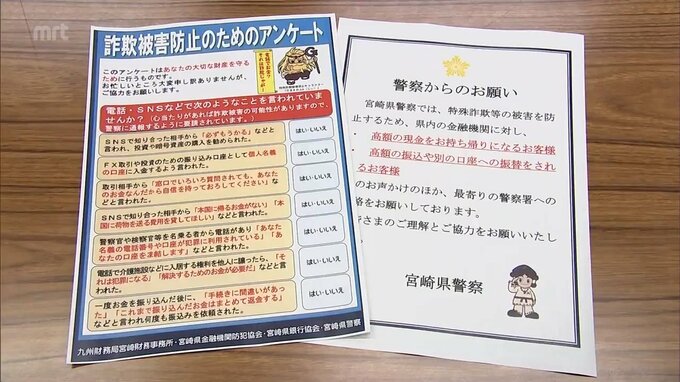 mrt
詐欺被害防止のためのアンケート
このアンケートはあなたの大切な財産を守る
ために行うものです。
お忙しいところ大変申し訳ありませんが、
ご協力をお願いします。
電話・SNSなどで次のようなことを言われていま
せんか？（心当たりがあれば詐欺被害の可能性がありますので、
警察に通報するように要請されています。）
SNSで知り合った相手から「必ずもうかる」などと
言われ、投資や暗号資産の購入を勧められた。
はい・いいえ
FX取引や投資のための振り込み口座として個人名義
の口座に入金するよう言われた。
はい・いいえ
取引相手から「窓口でいろいろ質問されても、あなた
のお金なんだから自信を持っておろしてください」な
どと言われた。
はい・いいえ
SNSで知り合った相手から「本国に帰るお金がない」「本国
に荷物を送る費用を貸してほしい」などと言われた。
はい・いいえ
警察官や検察官等を名乗る者から電話があり「あなた
名義の電話番号や口座が犯罪に利用されている」「あ
なたの口座を凍結します」などと言われた。
はい・いいえ
電話で介護施設などに入居する権利を他人に譲ったら、「そ
れは犯罪になる」「解決するためのお金が必要だ」などと言
われた。
はい・いいえ
一度お金を振り込んだ後に、「手続きに間違いがあっ
た」「これまで振り込んだお金はまとめて返金する」
などと言われ何度も振込みを依頼された。
はい・いいえ
九州財務局宮崎財務事務所・宮崎県金融機関防犯協会・宮崎県銀行協会・宮崎県警察
警察からのお願い
宮崎県警察では、特殊詐欺等の被害を防
止するため、県内の金融機関に対し、
・高額の現金をお持ち帰りになるお客様
・高額の振込や別の口座への振替をされ
るお客様
のお声かけのほか、最寄りの警察署への
絡をお願いしております。
皆さまのご理解とご協力をお願いいたし
宮崎県警察